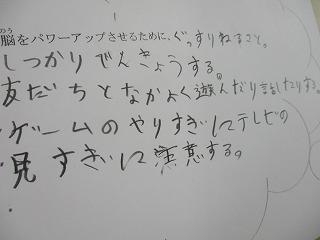 脳をパワーアップさせるために、ぐっすりねること。
しっかりでんきょうする。
友だちとなかよく遊んだり話したりする。
ゲームのやりすぎにテレビの
見すぎに注意する。